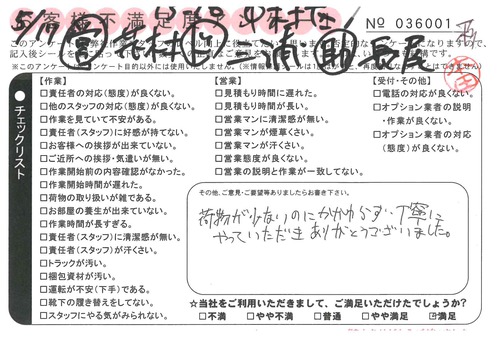 お客様不満足度
5/19
No 036001
※このアンケートはアンケート目的以外には使用いたしません。
チェックリスト
【作業】
□責任者の対応(態度)が良くない。
□他のスタッフの対応(態度)が良くない。
□作業を見ていて不安がある。
□責任者(スタッフ)に好感が持てない。
□お客様への挨拶が出来ていない。
□ご近所への挨拶・気遣いが無い。
□作業開始前の内容確認がなかった。
□作業開始時間が遅れた。
□荷物の取り扱いが雑である。
□お部屋の養生が出来ていない。
□作業時間が長すぎる。
□責任者(スタッフ)に清潔感が無い。
□責任者(スタッフ)が汗くさい。
□トラックが汚い。
□梱包資材が汚い。
□運転が不安(下手)である。
□靴下の履き替えをしてない。
□スタッフにやる気がみられない。
【営業】
□見積もり時間に遅れた。
□見積もり時間が長い。
□営業マンに清潔感が無い。
□営業マンが煙草くさい。
□営業マンが汗くさい。
□営業態度が良くない。
□営業の説明と作業が一致してない。
【受付・その他】
□電話の対応が良くない。
□オプション業者の説明
・作業が良くない。
□オプション業者の対応
(態度)が良くない。
その他、ご意見・ご要望等ありましたらお書き下さい。
荷物が少ないのにかかわらず丁寧に
やっていただきありがとうございました。
☆当社をご利用いただきまして、ご満足いただけたでしょうか?
□不満 □やや不満 □普通 □やや満足 ☑満足